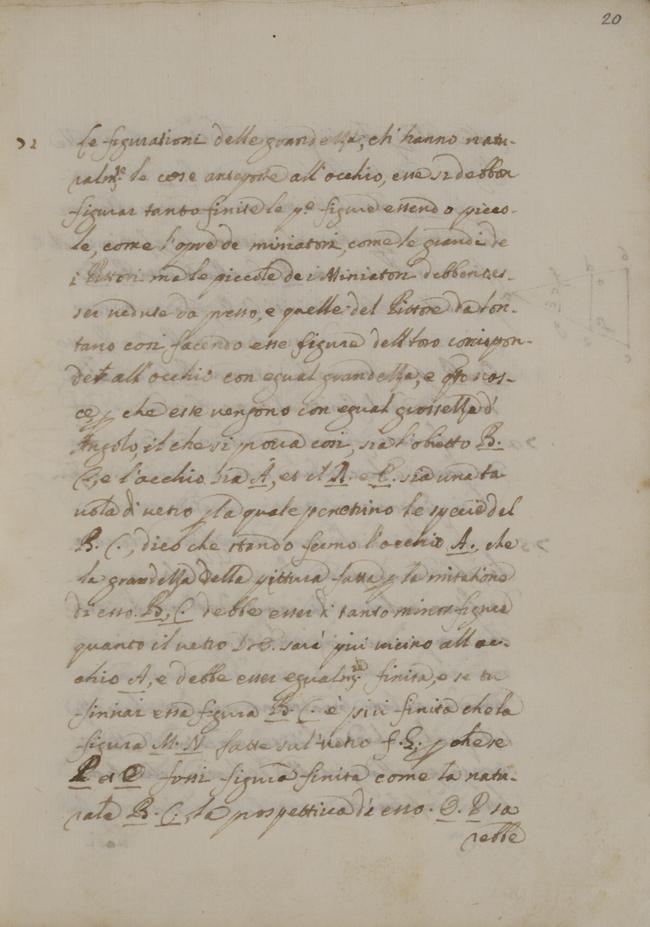 20
le figurationi delle grandezze, ch' hanno natu-
ralmte le cose anteposte all' occhio, esse si debbon
figurar tanto finite le pe figure essendo picco-
le, come l'opre de miniatori, come le grandi de
i Pittori. ma le piccole de i Miniatori debbon es-
ser vedute da presso, e quelle del Pittore da lon-
tano così facendo esse figure dell' loro correspon-
det all' occhio con egual grandezza, e qto nas-
ce, che esse vengono con egual grossezza d'
Angolo, il che si prova così, sia l'obietto B.
C. e l'occhio sia A, et il D. e E. sia una ta
vola di vetro p la quale penetrino le specie del
B. C., dico che stando fermo l'occhio A. che
la grandezza della pittura fatta p la imitatione
di esso. B. C. debbe esser di tanto minor figura
quanto il vetro D. E. sarà più vicino all' oc-
chio A, e debbe esser egualmte finita, e se tu
finirai essa figura B. C. è più finita che la
figura M. N fatte sul' vetro f. G. p che se
P et O fossi figura finita come la natu-
rale B. C., la prospettiva di esso. O. P sa
rebbe